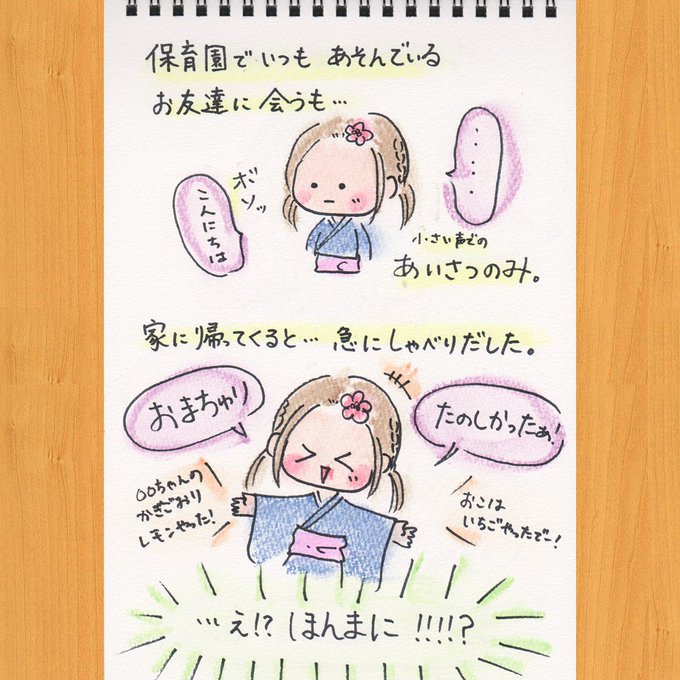 保育園でいつも あそんでいる
お友達に 会うも…
・・・・・
ボソッ
こんにちは
小さい声での
あいさつのみ。
家に帰ってくると… 急にしゃべりだした。
おまちゅり
たのしかったぁ!
〇〇ちゃんの
かきごおり
レモンやった!
おこは
いちごやったでー!
…え!? ほんまに !!!!?